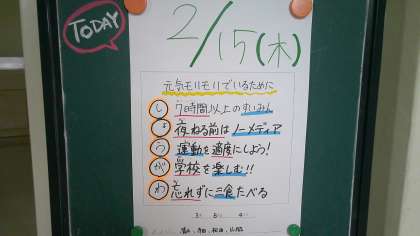 TODAY
2/15(木)
元気モリモリでいるために
し 7時間以上のすいみん
ょ 夜ねる前はノーメディア
う 運動を適度にしよう!
が 学校を楽しむ!!
わ 忘れずに三食たべる